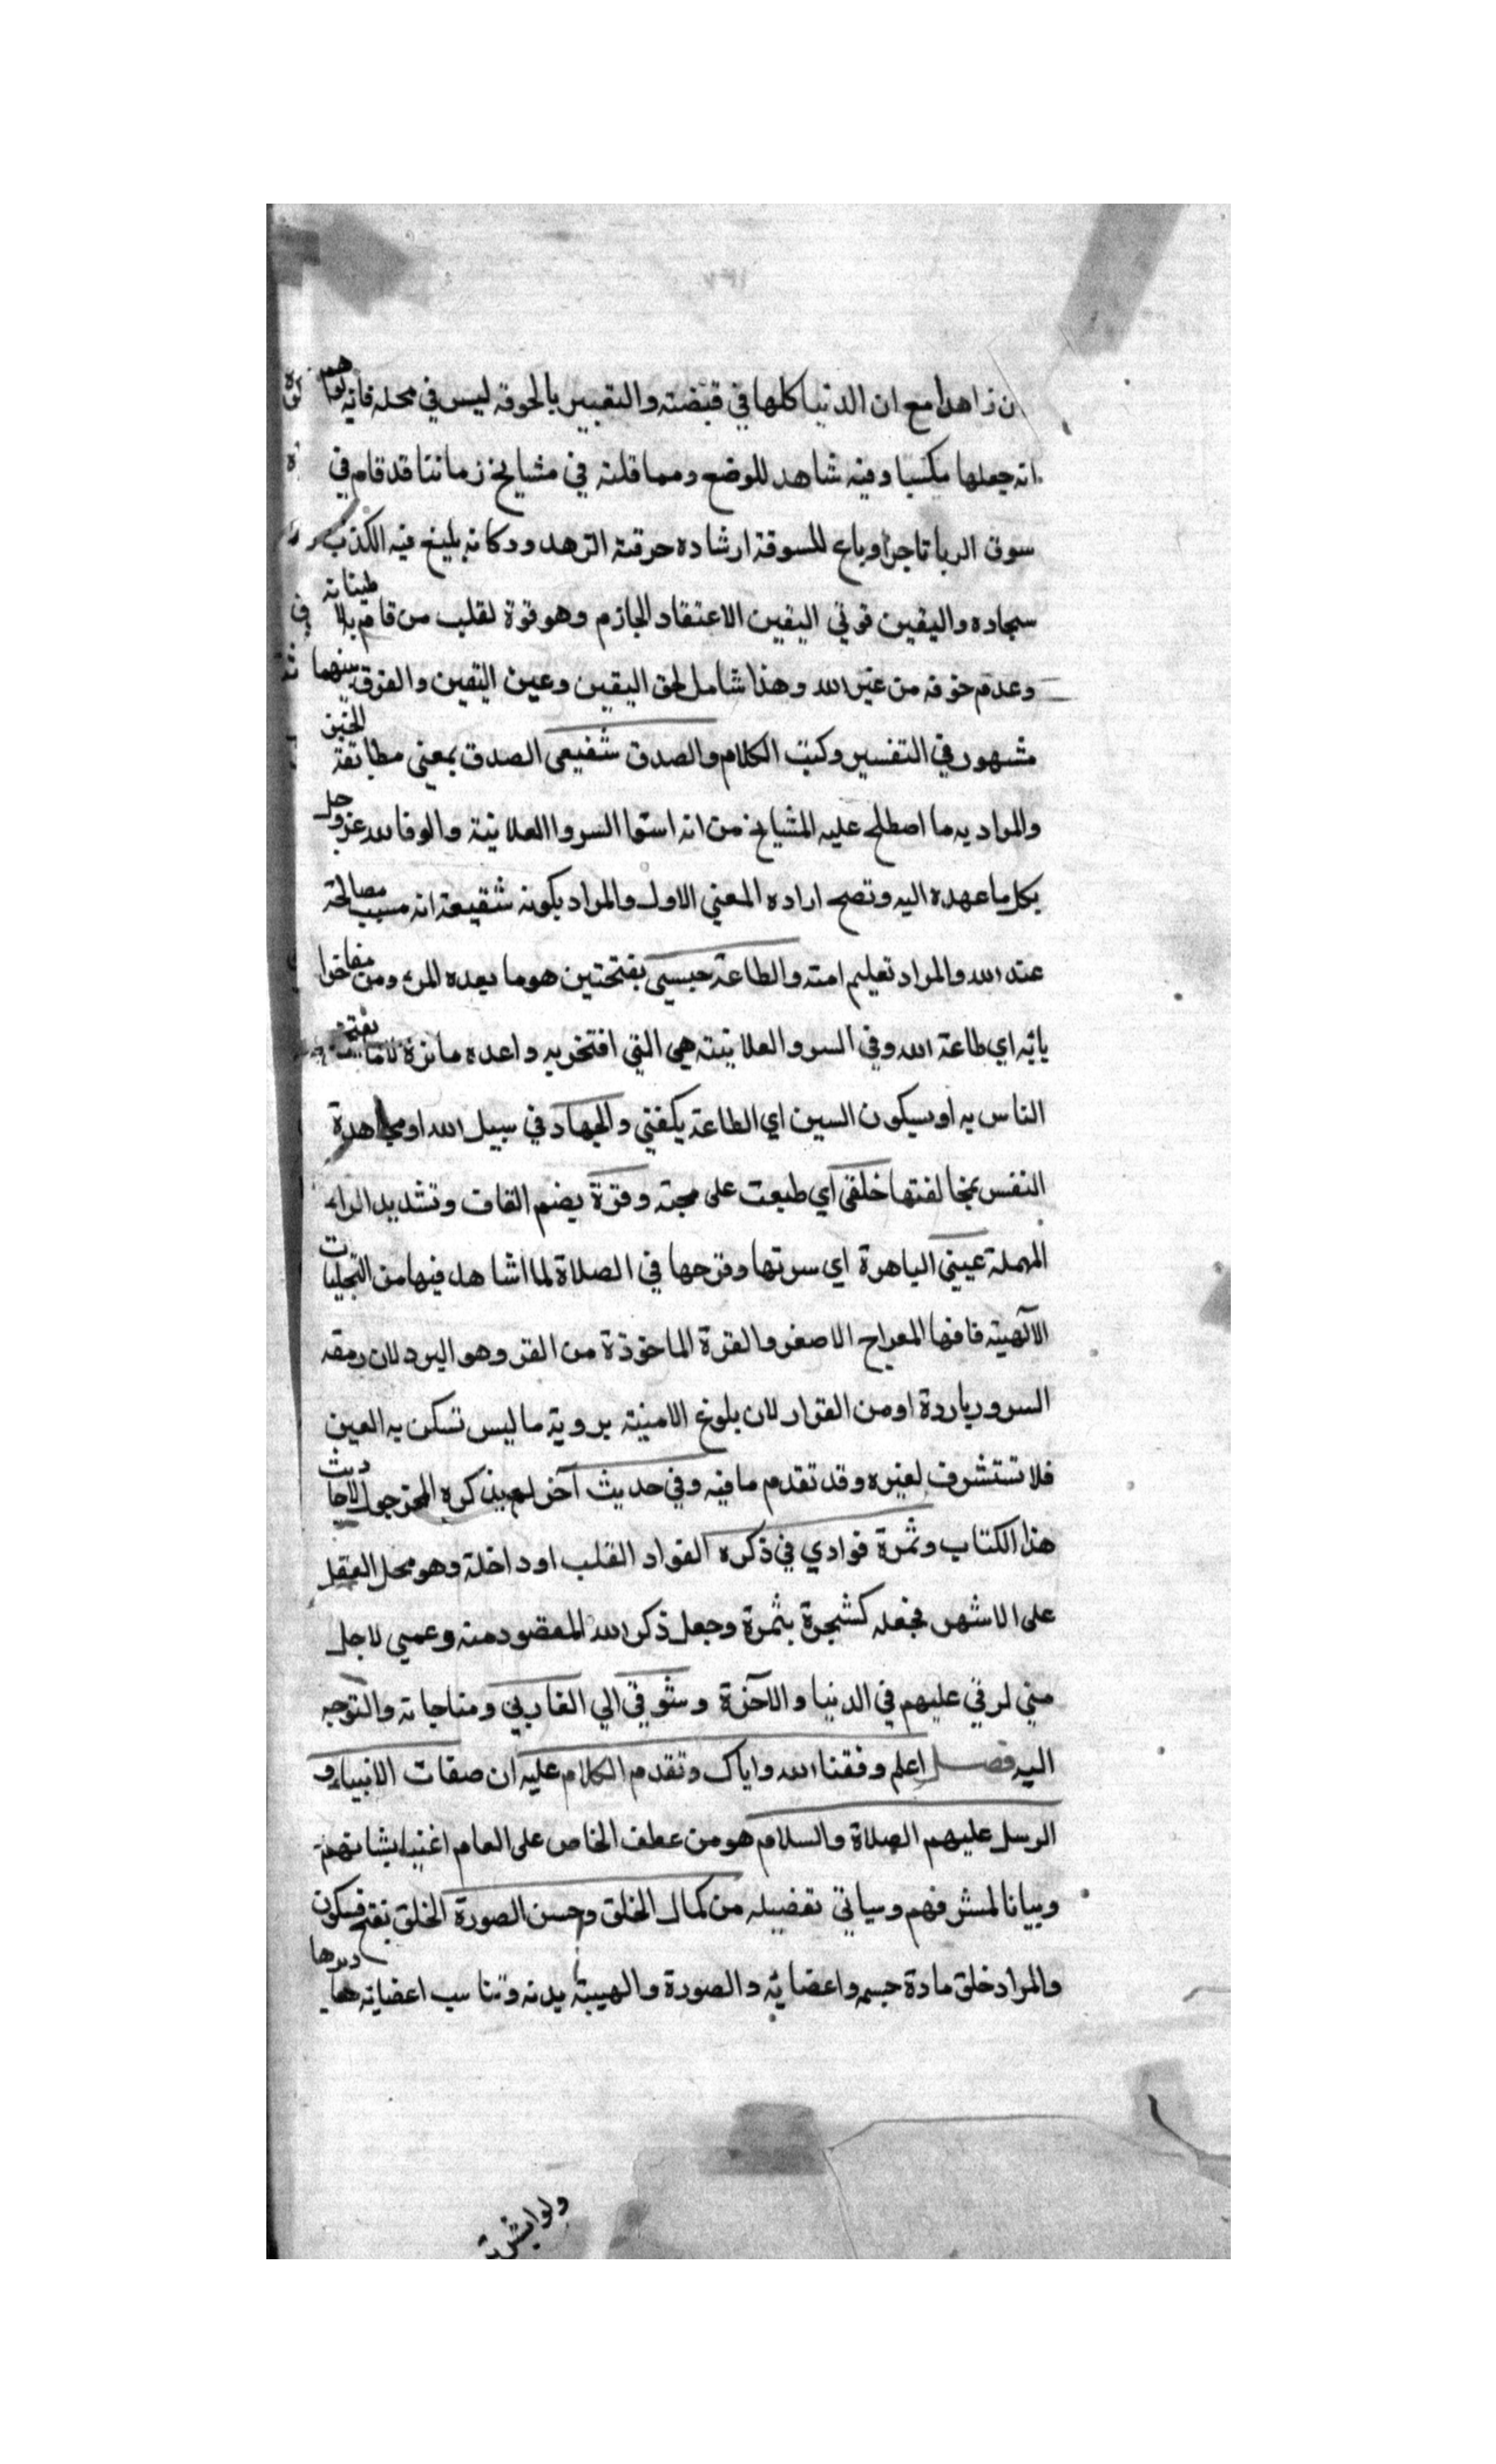 ن زاهدا مع ان الدنيا كلها في قبضته والتعبير بالحرفة ليس في محله فانه يوهم
انه جعلها مكسبا وفيه شاهد للوضع ومما قلته في مشايخ زماننا قد قام في
سوق الريا تاجرا وباع للسوقة ارشاده حرفته الزهد ودكانه يليغ فيه الكذب
سجاده واليقين قوتي اليقين الاعتقاد الجازم وهو قوة لقلب من قام به لاطمينانه
وعدم خوفه من غير الله وهذا شامل لحق اليقين وعين اليقين والفرق بينهما
مشهور في التفسير وكتب الكلام والصدق شفيعى الصدق بمعني مطابقة الخبر
والمراد به ما اصطلح عليه المشايخ من انه استوا السر والعلانية والوفا لله عز وجل
بكل ما عهده اليه وتصح اراده المعني الاول والمراد بكونه شفيعه انه مسبب مصالحة
عند الله والمراد تعليم امته والطاعة حسبي بفتحتين هو ما يعده المرء من مفاخر
يايه اي طاعة الله وفي السر والعلانية هي التي افتخر به واعده ماثرة لا ما يفتخر
الناس به او بسكون السين اي الطاعة يكفني والجهاد في سبيل الله او مجاهدة
النفس بمخالفتها خلقى اي طبعت على محبته وقرة بضم القاف وتشديد الراء
المهملة عيني الباهرة اي سرتها وفرحها في الصلاة لما اشاهد فيها من التجليات
الآلهية فانها المعراج الاصغر والقرة الماخوذة من القر وهو البرد لان دمعة
السرور باردة او من القرار لان بلوغ الامنية بروية ما ليس تسكن به العين
فلا تستشرف لغيره وقد تقدم ما فيه وفي حديث آخر لم يذكره المخرجوا لاحاديث
هذا الكتاب وثمرة فوادي في ذكره الفواد القلب او داخله وهو محل العقل
على الاشهر فجعله كشجرة بثمرة وجعل ذكر الله المقصود منه وغمي لاجل
متي لرقي عليهم في الدنيا والآخرة وشوقي الي القا ربي ومناجاته والتوجه
اليه فصل اعلم وفقنا الله واياك وتقدم الكلام عليه ان صفات الانبياء و
الرسل عليهم الصلاة والسلام هو من عطف الخاص على العام اغنيا بشانهم
وبيانا لمشرفهم وسياتي تفضيله من كمال الخلق وحسن الصورة الخلق بفتح فسكون
والمراد خلق مادة جسمه واعضايه والصورة والهيبة بدنه وتناسب اعضايه